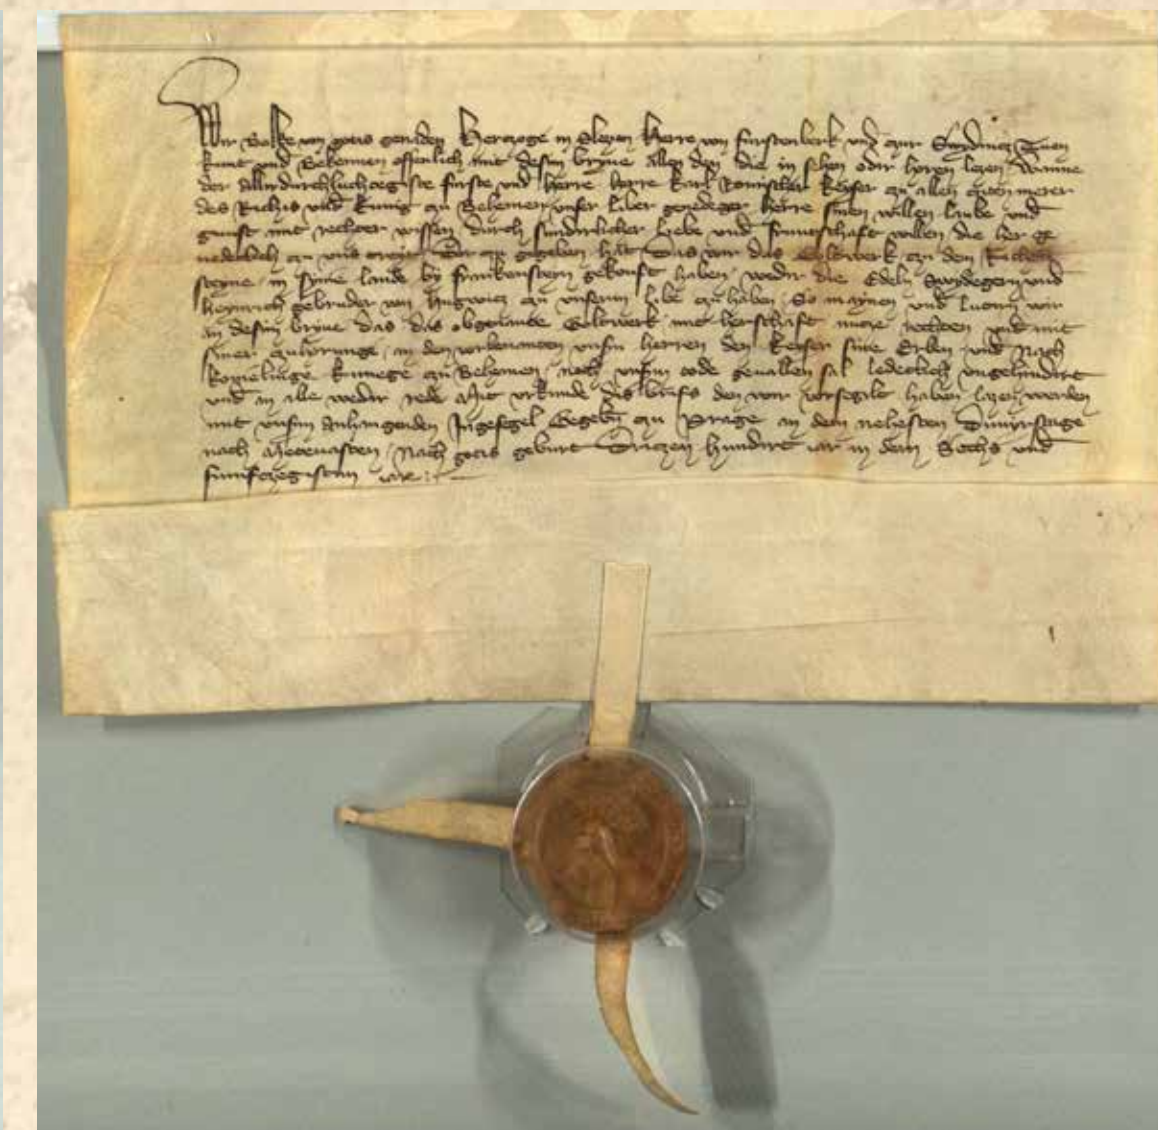 Wir Bolke von gotis genaden Herczoge in Slezen Herre von Furstenberk und zur Swydnicz Tuen
kunt und Bekennen offenlich mit desim bryue allen den die in sehen odir horen lezen Wanne
der allirdurchluchtegiste furste und herre herre Karl Romischer Keyser zu allen gecziten merer
des Richis und Kunig zu Behemen unser liber genedeger herre sinen willen liebe und
gunst mit rechter wissen durch sunderlicher liebe und fruntschaft willen die her ge
nedeclich zu uns Dar zu gegeben hat Das wir das Goltwerk zu dem Richen
steyne in syme lande by Frankensteyn gekouft haben wedir die Edeln und
Heynrich gebruder von Hugwicz zu unserm libe zu haben So meynen und wir
an desim bryue das das obgenante Goltwerk mit herschaft mit rechten und mit
siner zuhorunge an den vorbenanten unsirn herren den Keyser sine Erben und Nach
komelinge kunege zu Behemen noch unsirm tode geuallen sal ledeclich ungehindirt
und an alle wedir rede Mit urkunde dis brifs den wir vorsegilt haben lazen werden
mit unsirm anhangenden Ingesegel Gegebin zu Prage an dem nehesten Dunrstage
nach Mittevasten Nach gotis geburt Driczen hundirt iar in dem Sechs und
funfczegistim iare